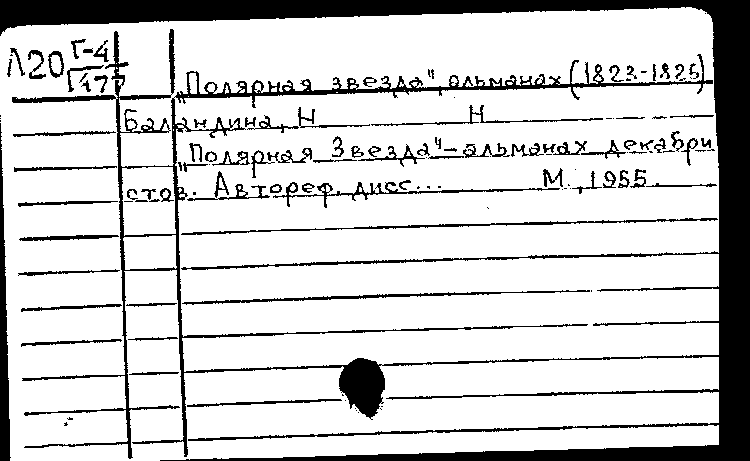 Л20 Г-4
1477
„Полярная звезда", альманах (1823-1825)
Баландина, Н Н
„Полярная Звезда"-альманах декабри
стов. Автореф. дисс... М., 1955.